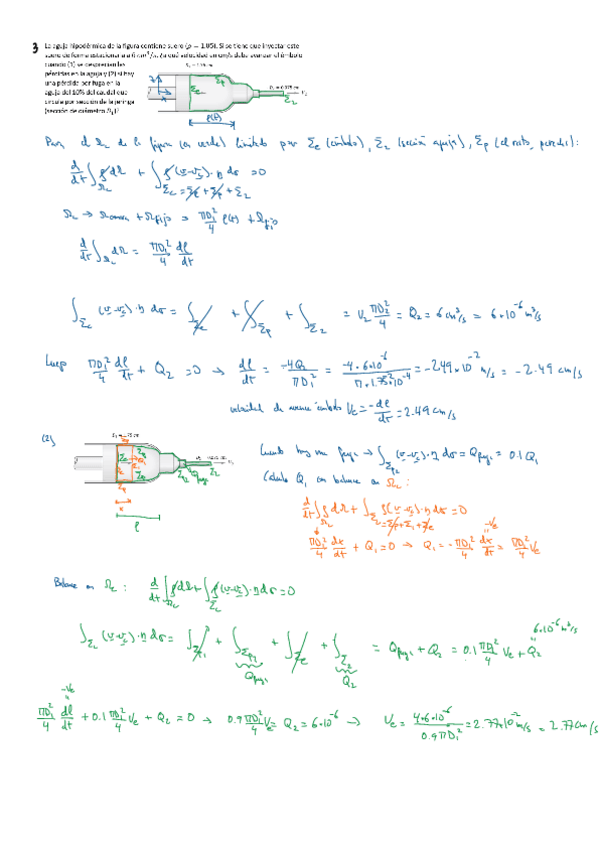 3 La aguja hipodérmica de la figura contiene suero (ρ = 1.05). Si se tiene que inyectar este
suero de forma estacionaria a 6 cm³/s, ¿a qué velocidad en cm/s debe avanzar el émbolo
cuando (1) se desprecian las
pérdidas en la aguja y (2) si hay
una pérdida por fuga en la
aguja del 10% del caudal que
circula por sección de la jeringa
(sección de diámetro D₁)?
Σe Σp Σ2
ℓ(t)
Para el Ωc de la figura (en verde) limitado por Σe (émbolo), Σ2 (sección aguja), Σp (el resto, paredes):
d/dt ∫Ωc ρ dΩ + ∫Σc ρ(v-vc)·n dσ = 0
Σc = Σe + Σp + Σ2
ΠD₁²/4 ℓ(t) + Ωfijo
d/dt ∫Ωc dΩ = ΠD₁²/4 dℓ/dt
∫Σc (v-vc)·n dσ = ∫Σe + ∫Σp + ∫Σ2 = V₂ ΠD₂²/4 = Q₂ = 6 cm³/s = 6·10⁻⁶ m³/s
Luego ΠD₁²/4 dℓ/dt + Q₂ = 0 → dℓ/dt = -4Q₂/ΠD₁² = -4·6·10⁻⁶/Π·1.75²·10⁻⁴ = -2.49·10⁻² m/s = -2.49 cm/s
velocidad de avance émbolo Ve = -dℓ/dt = 2.49 cm/s
(2)
x
ℓ
Cuando hay una fuga → (v-vc)·n dσ = Qfuga = 0.1 Q₁
Calculo Q₁ con balance en Ωc:
d/dt ∫Ωc ρ dΩ + ∫Σc ρ(v-vc)·n dσ = 0
= Σp + Σ1 + Σe
ΠD₁²/4 dx/dt + Q₁ = 0 → Q₁ = -ΠD₁²/4 dx/dt = ΠD₁²/4 Ve
-Ve
Balance en Ωc: d/dt ∫Ωc ρ dΩ + ∫Σc ρ(v-vc)·n dσ = 0
6·10⁻⁶ m³/s
∫Σc (v-vc)·n dσ = ∫Σp1 + ∫Σp2 + ∫Σe + ∫Σ2 = Qfuga + Q₂ = 0.1 ΠD₁²/4 Ve + Q₂
Qfuga Q₂
-Ve
ΠD₁²/4 dℓ/dt + 0.1 ΠD₁²/4 Ve + Q₂ = 0 → 0.9 ΠD₁²/4 Ve = Q₂ = 6·10⁻⁶ → Ve = 4·6·10⁻⁶/0.9ΠD₁² = 2.77·10⁻² m/s = 2.77 cm/s